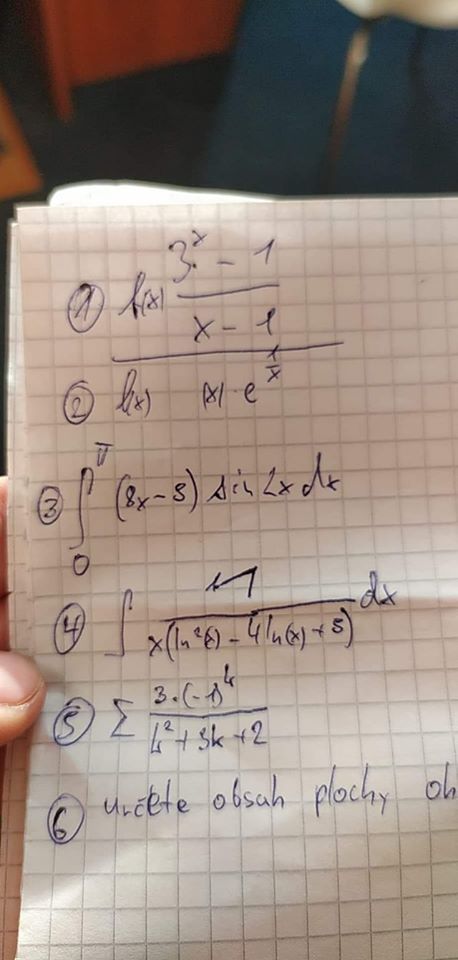 ① f(x) 3^x - 1
x - 1
② f(x) |x| · e^(1/x)
③ ∫ 0 π (8x-3) sin 2x dx
④ ∫ dx
x(ln²(x) - 4ln(x) + 5)
⑤ Σ 3·(-1)^k
k² + 3k + 2
⑥ určete obsah plochy oh